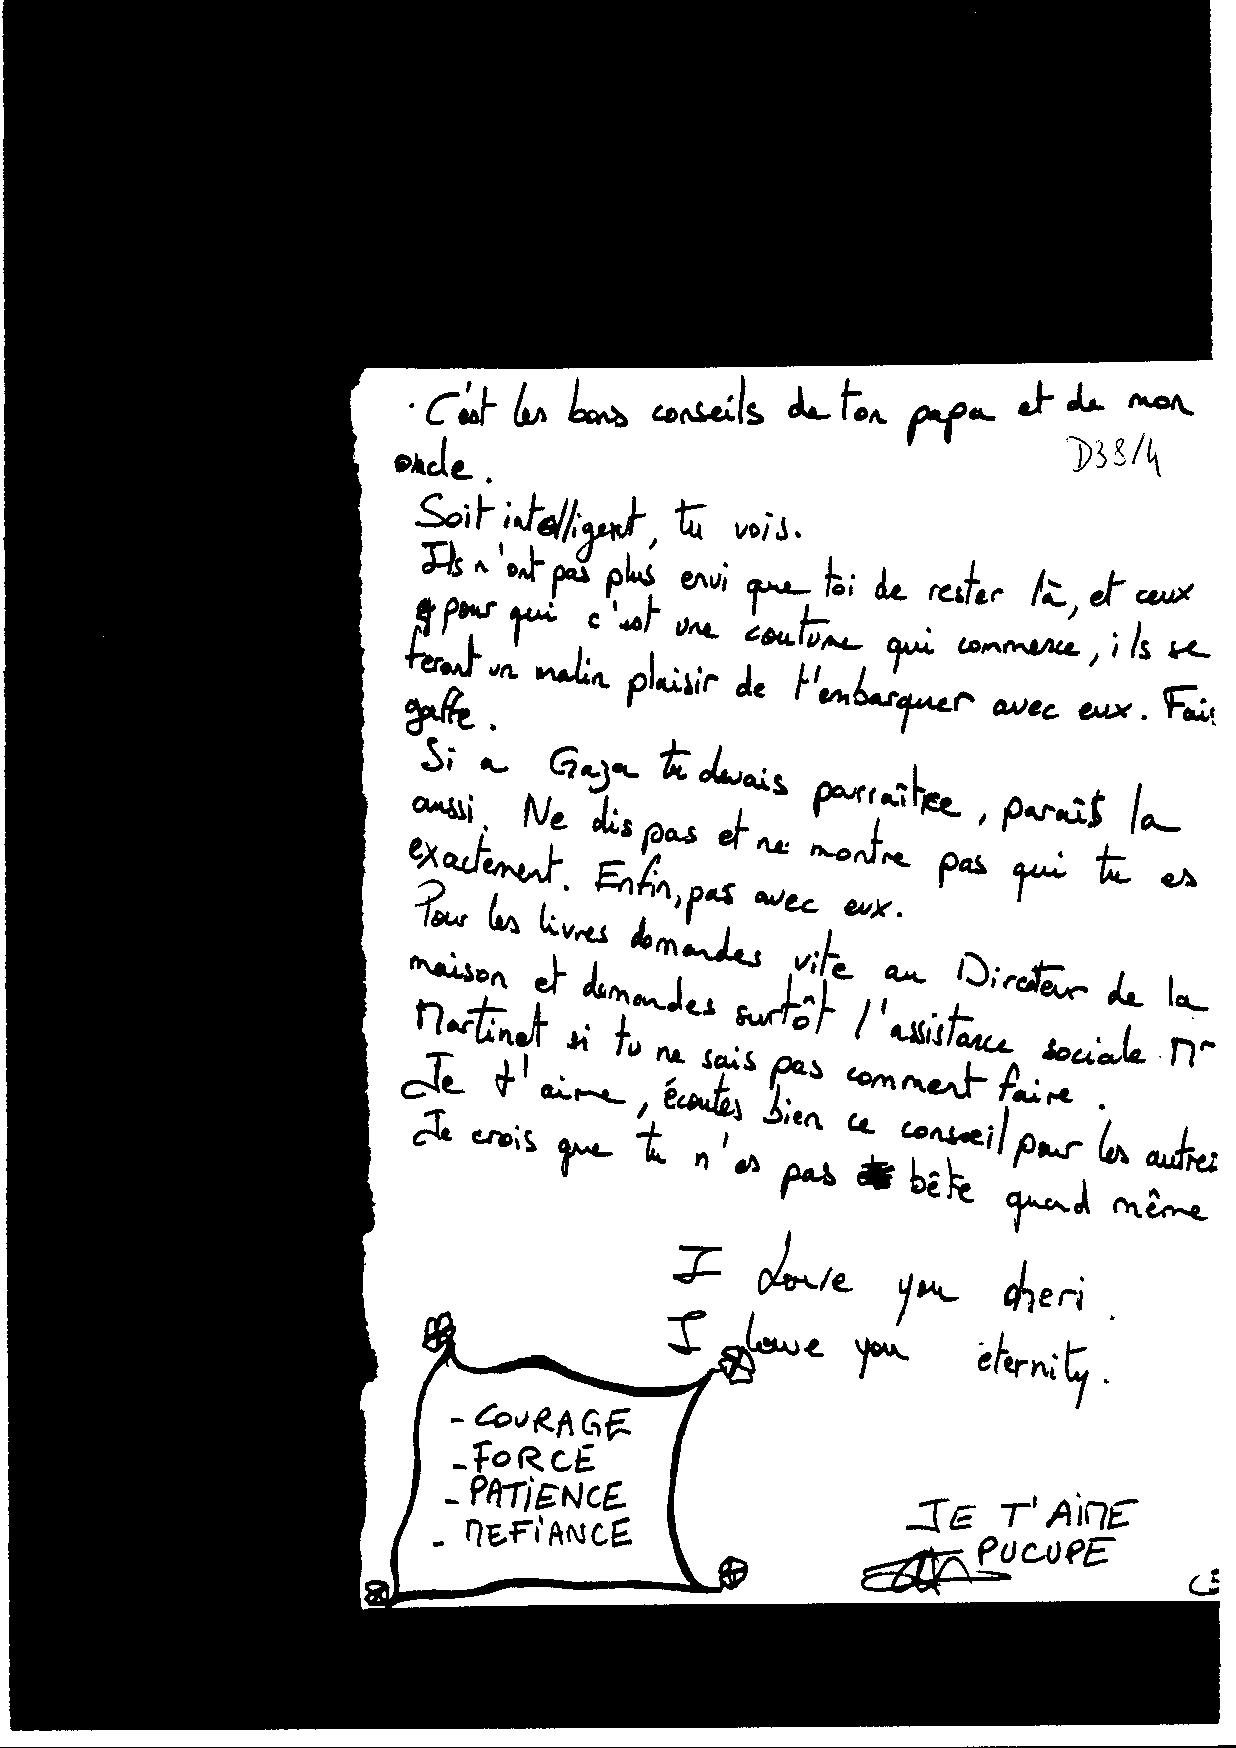 C'est les bons conseils de ton papa et de mon
oncle.
D38/4
Soit intelligent, tu vois.
Ils n'ont pas plus envi que toi de rester là, et ceux
pour qui c'est une coutume qui commence, ils se
feront un malin plaisir de t'embarquer avec eux. Fais
gaffe.
Si a Gaza tu devais parraître, paraîs la
aussi. Ne dis pas et ne montre pas qui tu es
exactement. Enfin, pas avec eux.
Pour les livres demandes vite au Directeur de la
maison et demandes surtôt l'assistance sociale Mr
Martinet si tu ne sais pas comment faire.
Je t'aime, écoutes bien ce conseil pour les autres
Je crois que tu n'es pas bête quand même
I Love you cheri.
I love you eternity.
- COURAGE
- FORCE
- PATIENCE
- MEFIANCE
JE T'AIME
PUCUPE